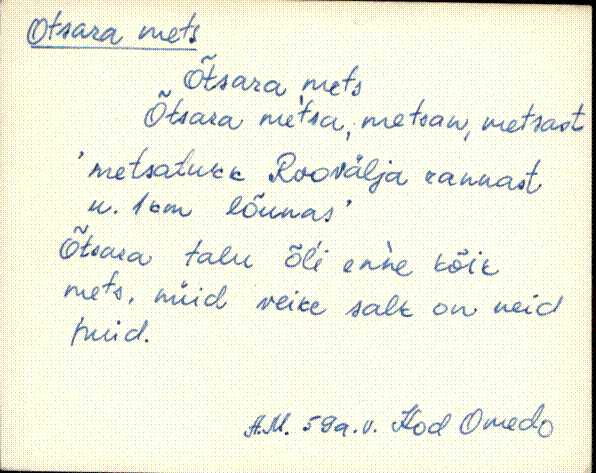 Otsara mets
Õtsara mets
Õtsara me̒tsa, metsan, metsast
'metsatukk Roovälja rannast
u. 1km lõunas'
Õtsara talu õĺi enne kõik
mets, nüid veike salk on neid
puid.
A.M. 59a.v. Kod Omedo